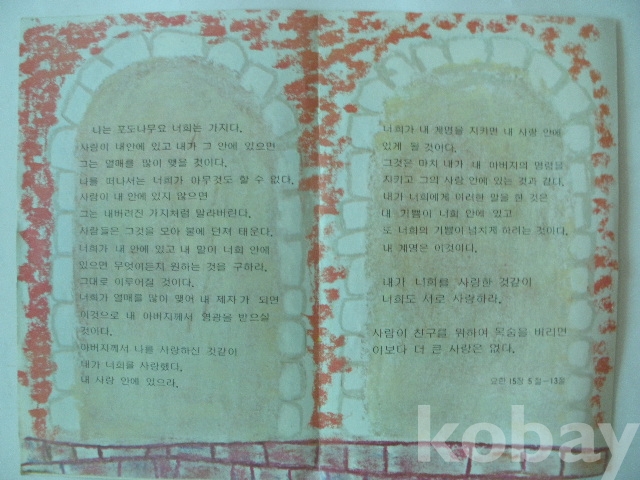 나는 포도나무요 너희는 가지다.
사람이 내안에 있고 내가 그 안에 있으면
그는 열매를 많이 맺을 것이다.
나를 떠나서는 너희가 아무것도 할 수 없다.
사람이 내 안에 있지 않으면
그는 내버려진 가지처럼 말라버린다.
사람들은 그것을 모아 불에 던져 태운다.
너희가 내 안에 있고 내 말이 너희 안에
있으면 무엇이든지 원하는 것을 구하라.
그대로 이루어질 것이다.
너희가 열매를 많이 맺어 내 제자가 되면
이것으로 내 아버지께서 영광을 받으실
것이다.
아버지께서 나를 사랑하신 것같이
내가 너희를 사랑했다.
내 사랑 안에 있으라.
너희가 내 계명을 지키면 내 사랑 안에
있게 될 것이다.
그것은 마치 내가 내 아버지의 명령을
지키고 그의 사랑 안에 있는 것과 같다.
내가 너희에게 이러한 말을 한 것은
내 기쁨이 너희 안에 있고
또 너희의 기쁨이 넘치게 하려는 것이다.
내 계명은 이것이다.
내가 너희를 사랑한 것같이
너희도 서로 사랑하라.
사람이 친구를 위하여 목숨을 버리면
이보다 더 큰 사랑은 없다.
요한 15장 5절-13절
kobay